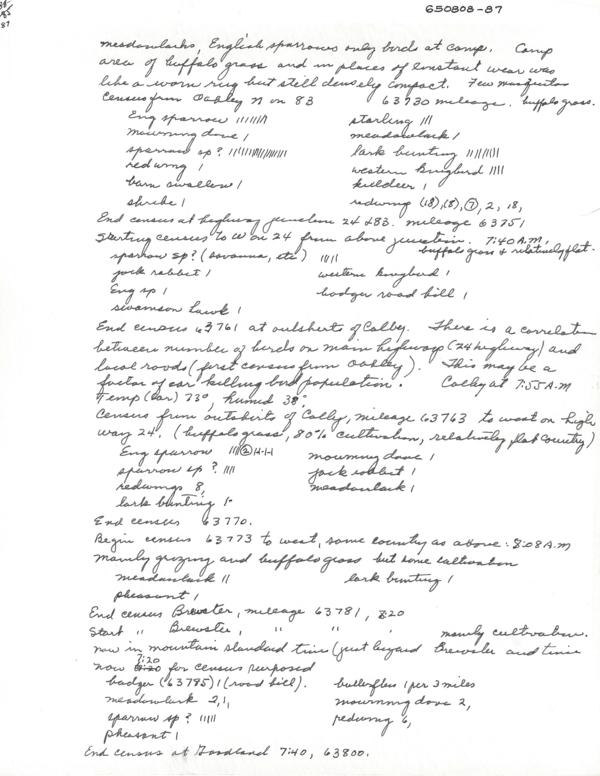 650808-87
87
meadowlarks, English sparrows only birds at camp. Camp
area of buffalo grass and in places of constant wear was
like a worn rug but still densely compact. Few mosquitos
Census from Oakley N on 83 63730 mileage. buffalo grass.
Eng sparrow starling III
mourning dove I meadowlark I
sparrow sp? lark bunting
redwing I western kingbird IIII
barn swallow I killdeer I
shrike I redwing (18), (8), (7), 2, 18,
End census at highway junction 24 & 83. mileage 63751
Starting census to W on 24 from above junction. 7:40 A.M.
buffalo grass & relatively flat.
sparrow sp? (savanna, etc) IIII
jack rabbit I western kingbird I
Eng sp I badger road kill I
swainson hawk I
End census 63761 at outskirts of Colby. There is a correlation
between number of birds on main highway (24 highway) and
local roads (first census from Oakley). This may be a
factor of car killing bird population. Colby at 7:55 A.M
Temp (car) 73°, humid 38°
Census from outskirts of Colby, mileage 63763 to west on high
way 24. (buffalo grass, 80% cultivation, relatively flat country)
Eng sparrow mourning dove I
sparrow sp ? IIII jack rabbit I
redwings 8, meadowlark I
lark bunting I
End census 63770.
Begin census 63773 to west, same country as above: 8:08 A.M
mainly grazing and buffalo grass but some cultivation
meadowlark II lark bunting I
pheasant I
End census Brewster, mileage 63781, 820
Start " Brewster, " " " mainly cultivation.
now in mountain standard time (just beyond Brewster and time
now 7:20 for census purposes
badger (63785) I (road kill). butterflies 1 per 3 miles
meadowlark 2, 1, mourning dove 2,
sparrow sp ? IIIII redwing 6,
pheasant I
End census at Goodland 7:40, 63800.